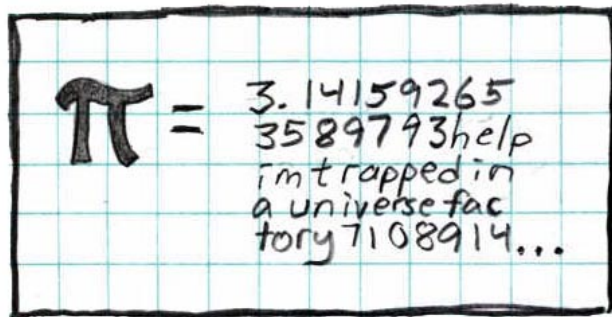 π = 3.14159265
3589793help
imtrappedin
auniversefac
tory7108914...